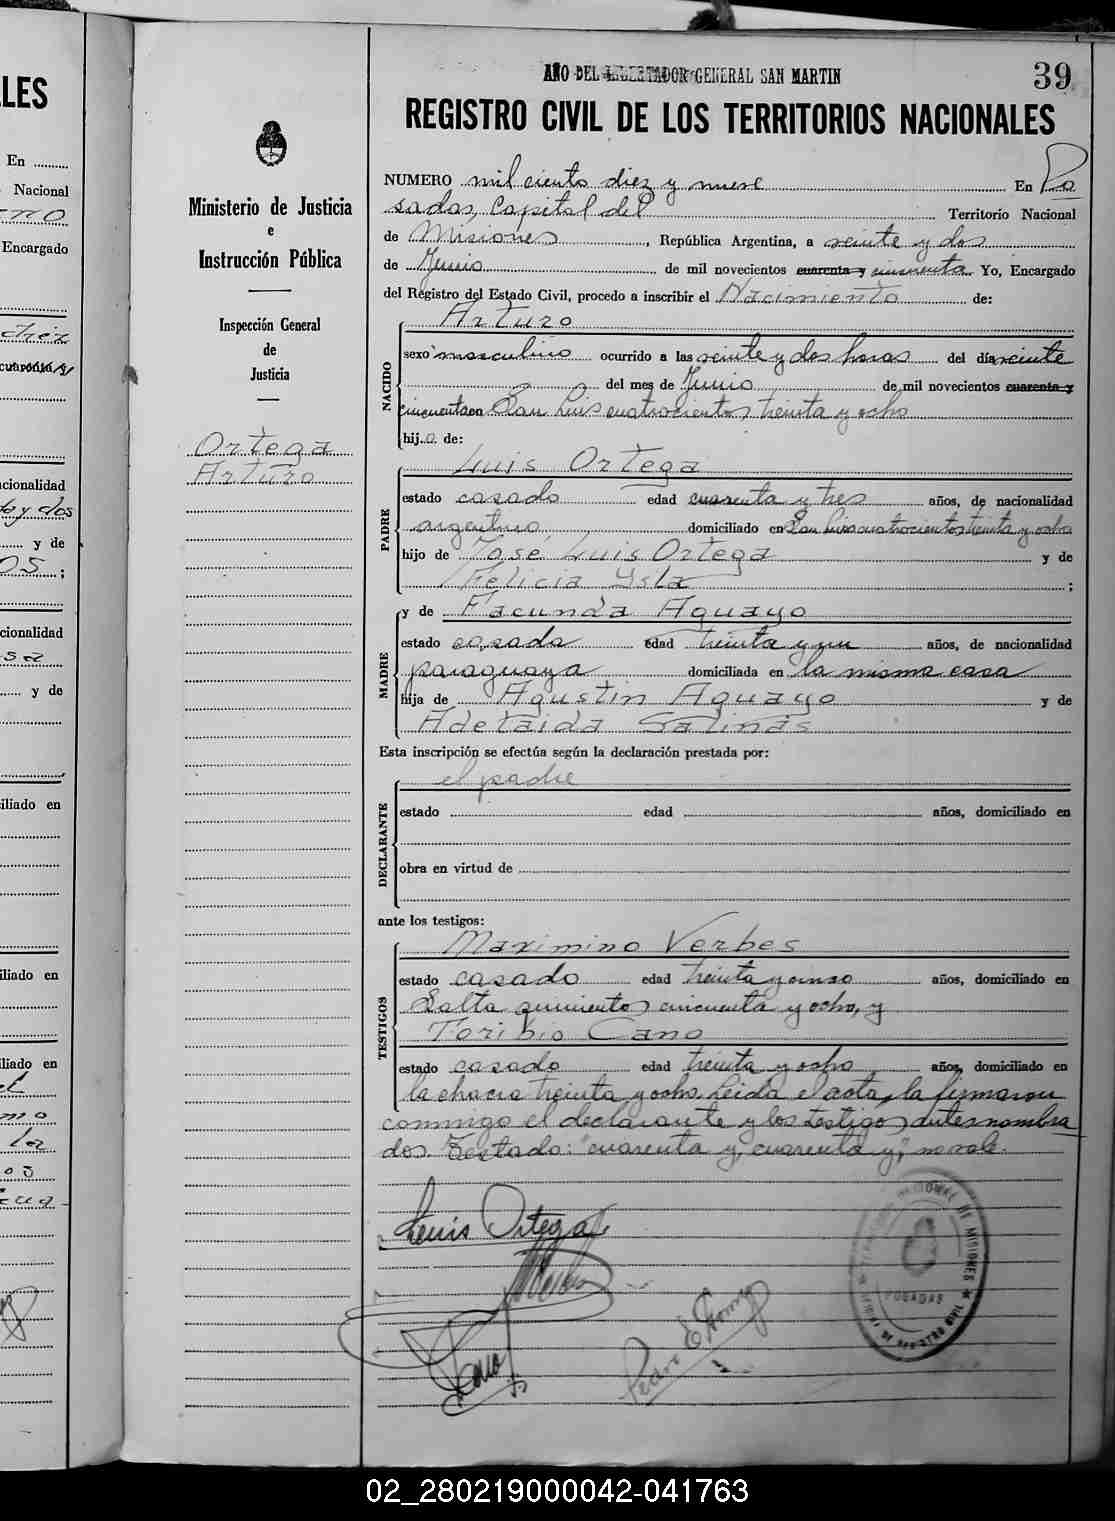 AÑO DEL LIBERTADOR GENERAL SAN MARTIN
39
REGISTRO CIVIL DE LOS TERRITORIOS NACIONALES
Ministerio de Justicia
e
Instrucción Pública
Inspección General
de
Justicia
Ortega
Arturo
NUMERO mil ciento diez y nueve En Po
sadas, Capital del Territorio Nacional
de Misiones, República Argentina, a veinte y dos
de Junio de mil novecientos cuarenta y cincuenta Yo, Encargado
del Registro del Estado Civil, procedo a inscribir el Nacimiento de:
NACIDO
Arturo
sexo masculino ocurrido a las veinte y dos horas del día veinte
del mes de Junio de mil novecientos cuarenta y
cincuenta en San Luis cuatrocientos treinta y ocho
hijo de:
PADRE
Luis Ortega
estado casado edad cuarenta y tres años, de nacionalidad
argentino domiciliado en San Luis cuatrocientos treinta y ocho
hijo de José Luis Ortega y de
Felicia Ysla ;
MADRE
y de Facunda Aguayo
estado casada edad treinta y un años, de nacionalidad
paraguaya domiciliada en la misma casa
hija de Agustin Aguayo y de
Adelaida Salinas
Esta inscripción se efectúa según la declaración prestada por:
DECLARANTE
el padre
estado edad años, domiciliado en
obra en virtud de
ante los testigos:
TESTIGOS
Maximino Verbes
estado casado edad treinta y cinco años, domiciliado en
Salta quinientos cincuenta y ocho, y
Toribio Cano
estado casado edad treinta y ocho años, domiciliado en
la chacra treinta y ocho. Leida el acta, la firmaron
conmigo el declarante y los testigos antes nombra
dos. Testado: "cuarenta y, cuarenta y", no vale.
Luis Ortega
Cano
Pedro E
NACIONAL DE MISIONES
POSADAS
OFICINA DE REGISTRO CIVIL
LES
En
Nacional
Encargado
nacionalidad
y dos
y de
OS ;
nacionalidad
y de
domiciliado en
domiciliado en
domiciliado en
02_280219000042-041763